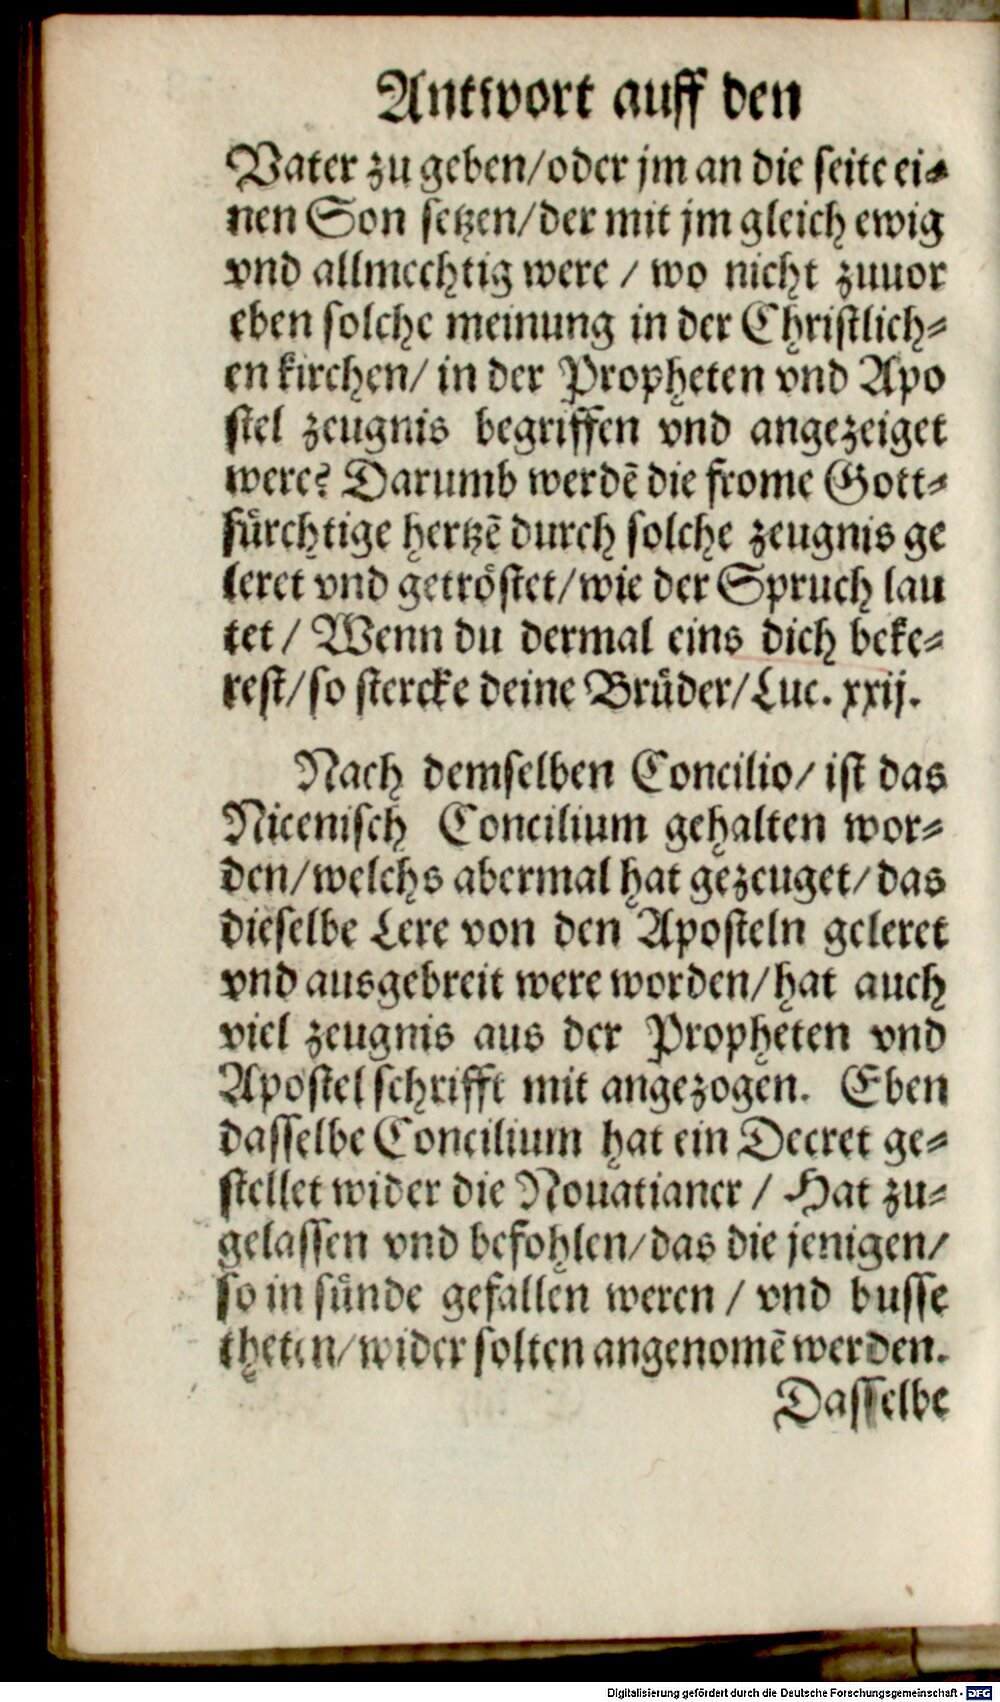 Antwort auff den
Vater zu geben/oder jm an die seite ei⸗
nen Son setzen/der mit jm gleich ewig
vnd allmechtig were / wo nicht zuuor
eben solche meinung in der Christlich⸗
en kirchen/ in der Propheten vnd Apo
stel zeugnis begriffen vnd angezeiget
were? Darumb werdẽ die frome Gott⸗
fürchtige hertzẽ durch solche zeugnis ge
leret vnd getröstet/wie der Spruch lau
tet / Wenn du dermal eins dich beke⸗
rest/so stercke deine Brüder/Luc. xxij.
Nach demselben Concilio/ ist das
Nicenisch Concilium gehalten wor⸗
den/welchs abermal hat gezeuget/das
dieselbe Lere von den Aposteln geleret
vnd ausgebreit were worden/hat auch
viel zeugnis aus der Propheten vnd
Apostel schrifft mit angezogen. Eben
dasselbe Concilium hat ein Decret ge⸗
stellet wider die Nouatianer / Hat zu⸗
gelassen vnd befohlen/das die jenigen/
so in sünde gefallen weren / vnd busse
theten/wider solten angenomẽ werden.
Dasselbe
Digitalisierung gefördert durch die Deutsche Forschungsgemeinschaft - DFG